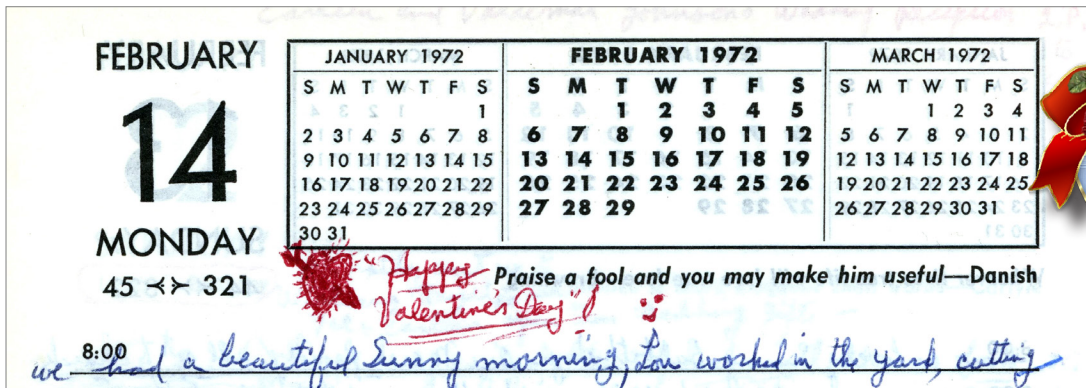 FEBRUARY
14
MONDAY
45 321
JANUARY 1972
S M T W T F S
1
2 3 4 5 6 7 8
9 10 11 12 13 14 15
16 17 18 19 20 21 22
23 24 25 26 27 28 29
30 31
FEBRUARY 1972
S M T W T F S
1 2 3 4 5
6 7 8 9 10 11 12
13 14 15 16 17 18 19
20 21 22 23 24 25 26
27 28 29
MARCH 1972
S M T W T F S
1 2 3 4
5 6 7 8 9 10 11
12 13 14 15 16 17 18
19 20 21 22 23 24 25
26 27 28 29 30 31
"Happy
Valentine's Day"!
Praise a fool and you may make him useful—Danish
8:00
we had a beautiful Sunny morning, Lou worked in the yard, cutting